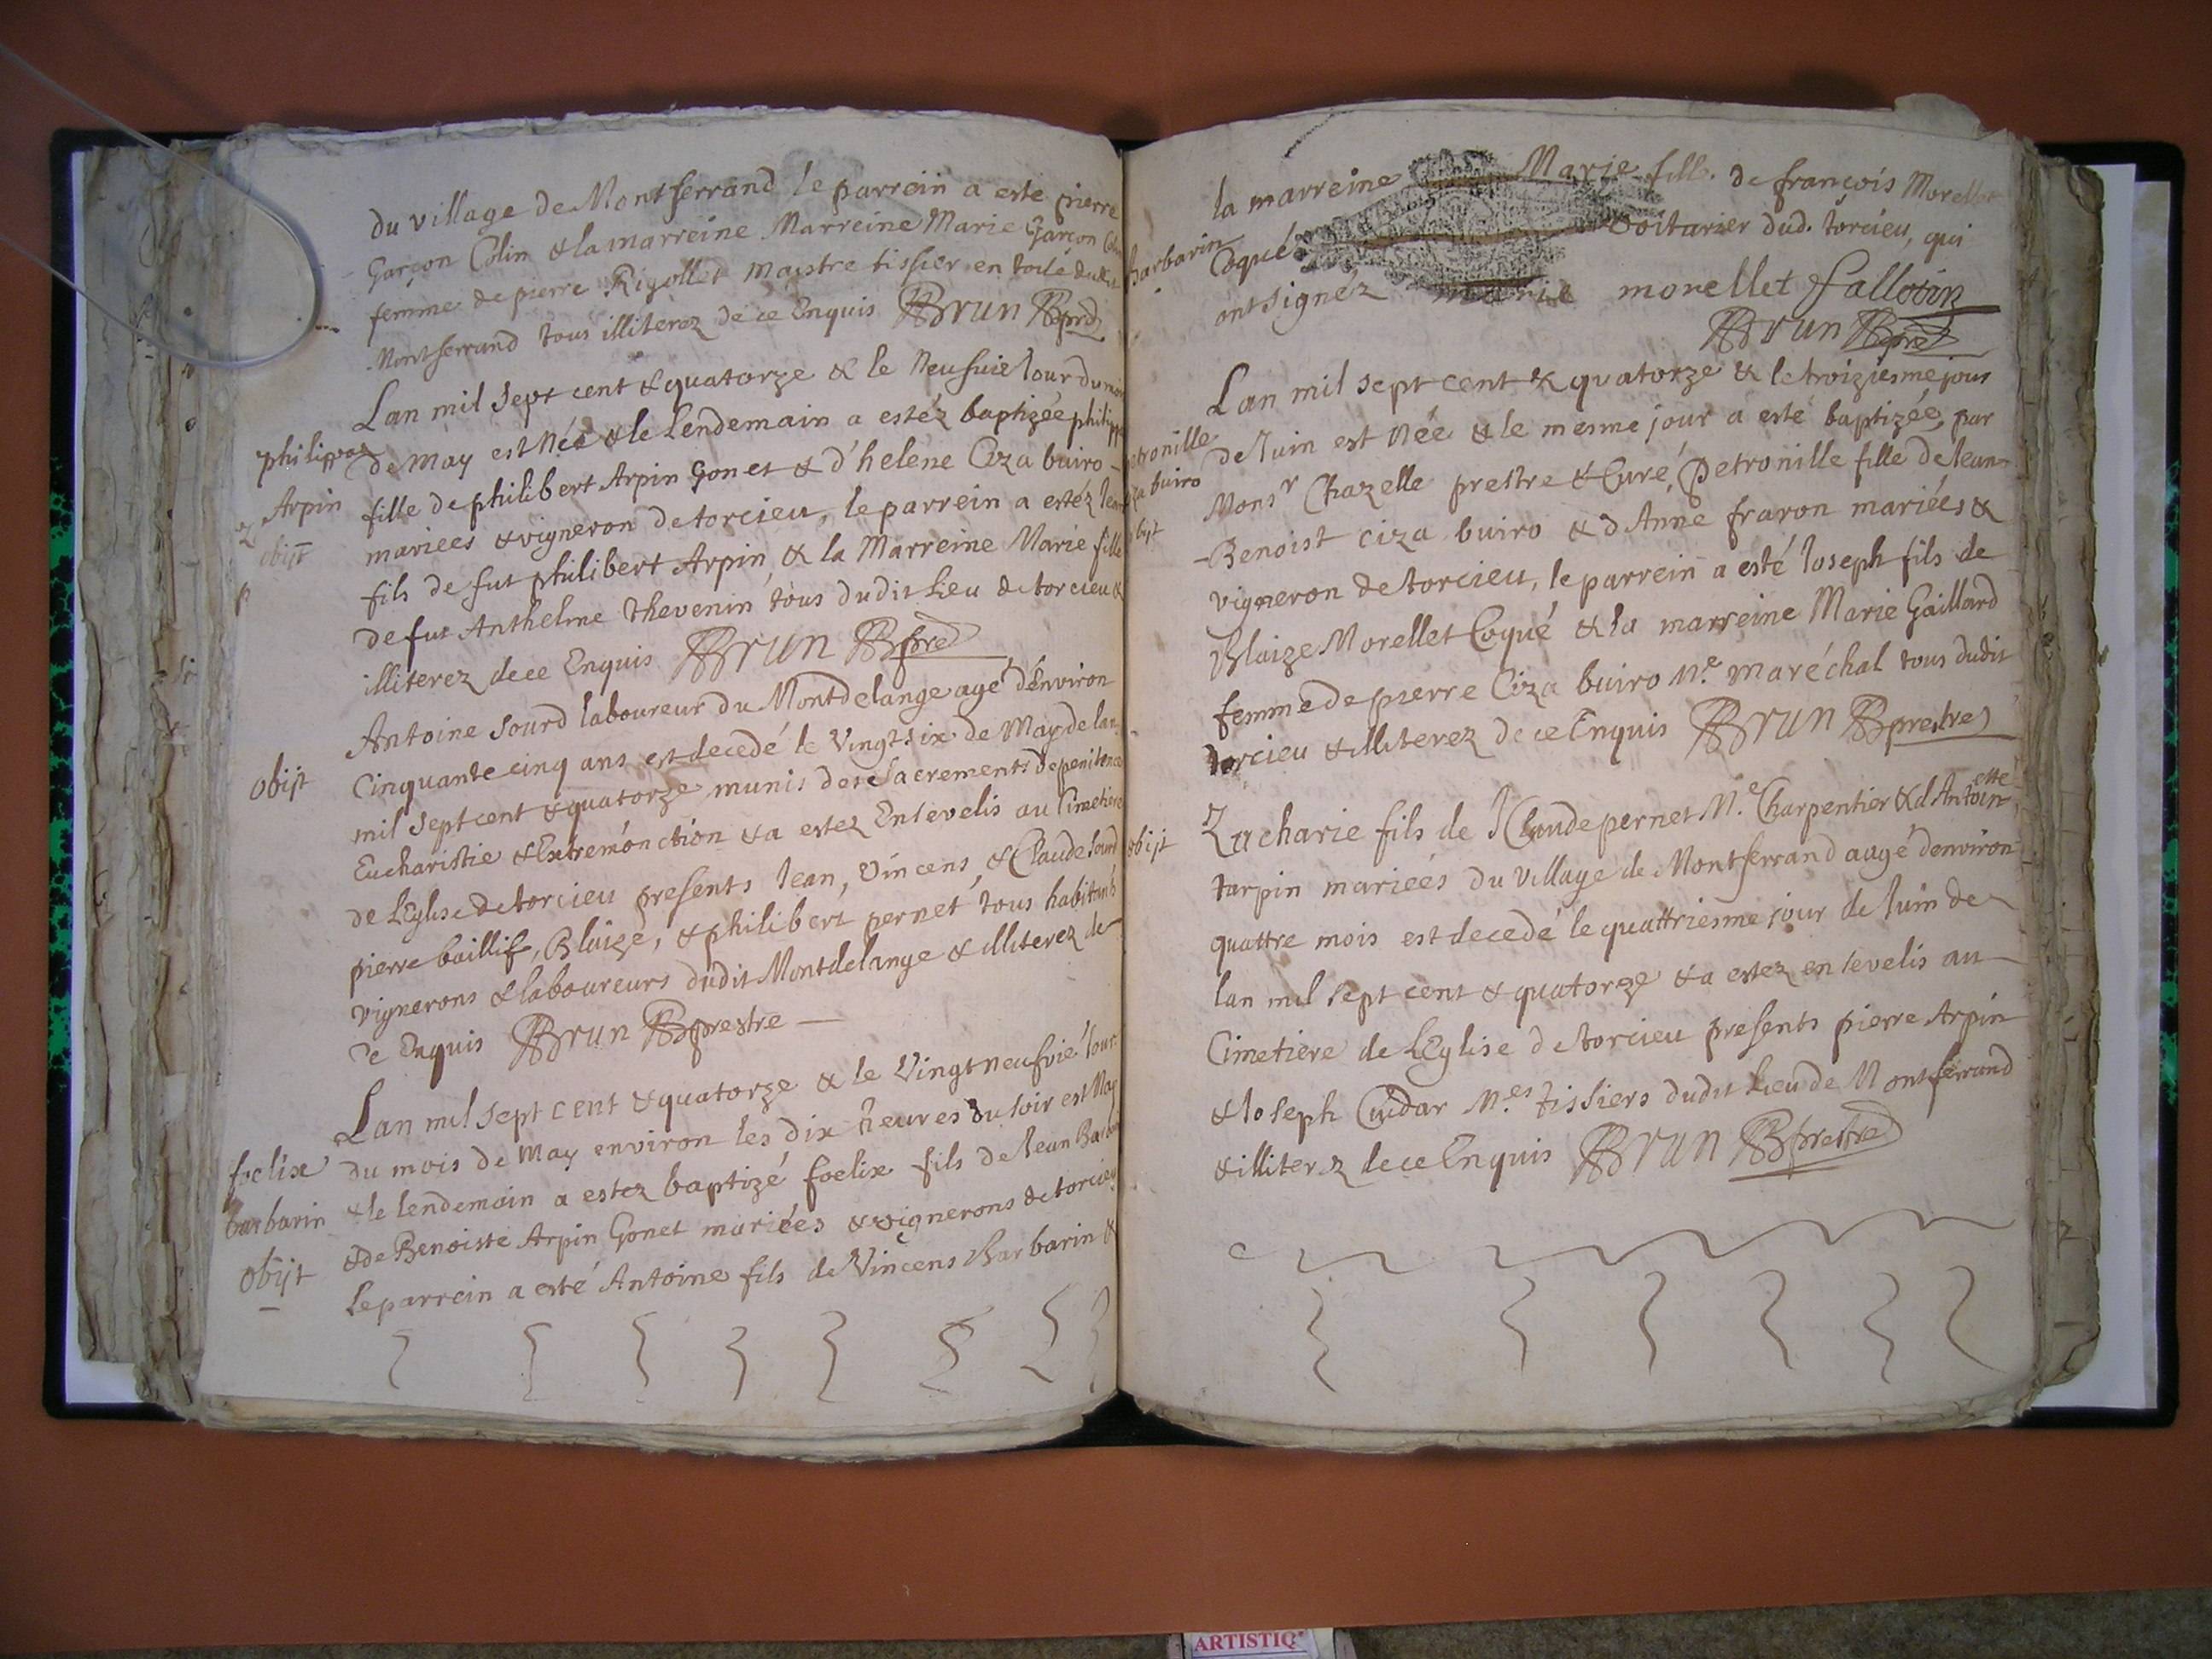 du village de Montferrand le parrein a este pierre
Garçon Colin & la marreine Marreine Marie Garçon
femme de pierre Rigollet maistre tissier en toile dudit
Montferrand tous illiterez de ce Enquis Brun
Lan mil sept cent & quatorze & le Neufvie Jour du mois
philippaz
de May est Née & le Lendemain a estéz baptizée philippe
Arpin
fille de philibert Arpin Gonet & d'helene Ciza buiro
obijt
mariees & vigneron de torcieu, le parrein a estéz Jean
fils de fut philibert Arpin, & la Marreine Marie fille
de fut Anthelme Thevenin tous dudit Lieu de torcieu &
illiterez de ce Enquis Brun pre
Antoine Sourd laboureur du Montdelange agé d'Environ
obijt
Cinquante cinq ans est decedé le Vingt six de May de lan
mil sept cent & quatorze munis de se Sacrements de penitence
Eucharistie & Extremónction & a estez Ensevelis au Cimetiere
de LEglise de torcieu presents Jean, Vincens, & Claude Sourd
pierre baillif, Blaize, & philibert pernet tous habitants
vignerons & laboureurs dudit Montdelange & illiterez de
ce Enquis Brun prestre
Lan mil sept cent & quatorze & le Vingt neufvie Jour
foelix
du mois de May environ les dix heures du soir est Nay
barbarin
& le lendemain a estez baptizé foelix fils de Jean Barbarin
obijt
& de Benoiste Arpin Gonet mariées & vignerons de torcieu
Le parrein a esté Antoine fils de Vincens Barbarin &
la marreine Marie fille de françois Morellet
barbarin
Coqué Voiturier dud. torcieu, qui
ont signéz marie morellet
Brun pre
Lan mil sept cent & quatorze & le troiziesme jour
petronille
de Juin est Née & le mesme jour a esté baptizée, par
ciza buiro
Monsr Chazelle prestre & Curé, Petronille fille de Jean
obijt
Benoist ciza buiro & d Anne fraron mariées &
vigneron de torcieu, le parrein a esté Joseph fils de
Blaize Morellet Coqué & la marreine Marie Gaillard
femme de pierre Ciza buiro M.e maréchal tous dudit
torcieu & illiterez de ce Enquis Brun prestre
Zacharie fils de Claude pernet M.e Charpentier & d Antoinette
obijt
tarpin mariées du village de Montferrand aagé denviron
quattre mois est decedé le quattriesme jour de Juin de
lan mil sept cent & quatorze & a estez ensevelis au
Cimetiere de LEglise de torcieu presents pierre Arpin
& Joseph Cuidar M.es tissiers dudit Lieu de Montferrand
& illiterez de ce Enquis Brun prestre
ARTISTIQ